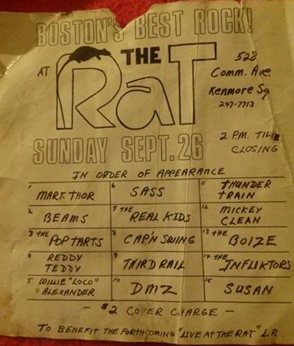 BOSTON'S BEST ROCK!
AT THE RAT
528
Comm. Ave.
Kenmore Sq
247-7713
SUNDAY SEPT. 26
2 P.M. TILL
CLOSING
IN ORDER OF APPEARANCE
1 MARK THOR
6 SASS
11 THUNDER TRAIN
2 BEAMS
7 THE REAL KIDS
12 MICKEY CLEAN
3 THE POPTARTS
8 CAP'N SWING
13 THE BOIZE
4 REDDY TEDDY
9 THIRD RAIL
14 THE INFLIKTORS
5 WILLIE "LOCO" ALEXANDER
10 DMZ
15 SUSAN
— $2 COVER CHARGE —
TO BENEFIT THE FORTHCOMING "LIVE AT THE RAT" L.P.